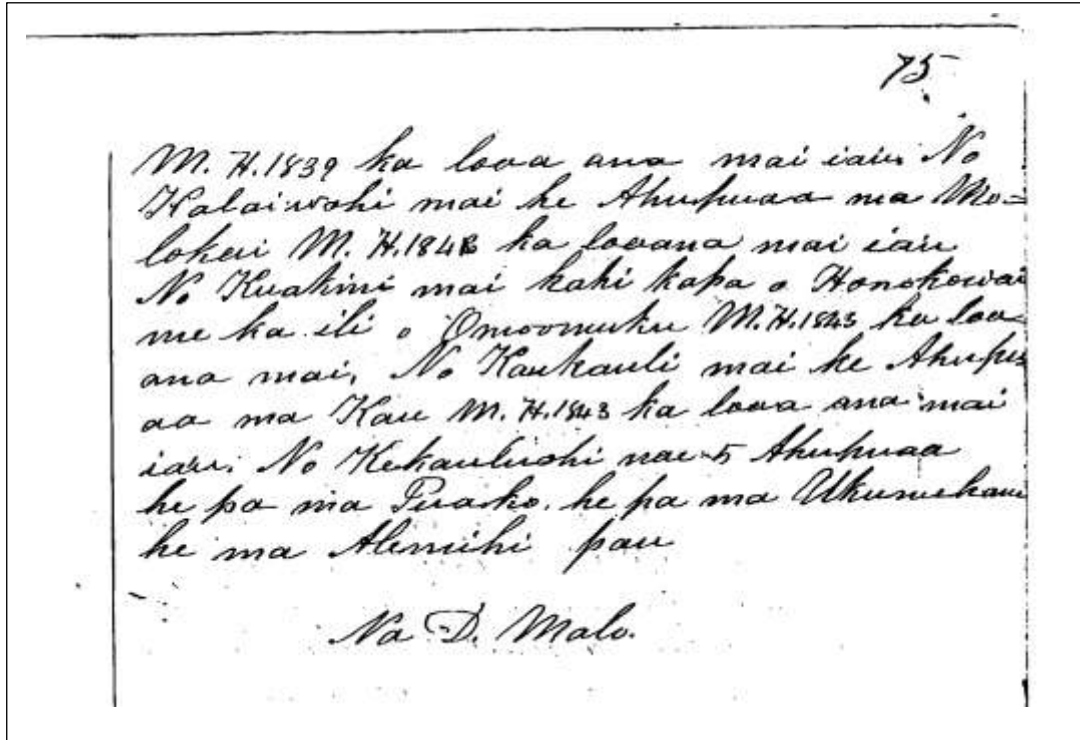 75.
M. H. 1839 ka looa ana mai iau. No
Kalaiwohi mai he Ahupuaa ma Mo=
lokai M. H. 184 ka looana mai iau
No Kuakini mai kahi kapa o Honokowai
me ka ili o Omoomuku M. H. 1843 ka loo
ana mai, No Kaukauli mai ke Ahupu
aa ma Kau M. H. 1843 ka looa ana mai
iau. No Kekauluohi nae 5 Ahupuaa
he pa ma Puako. he pa ma Ukumehame
he ma Alemihi pau
Na D. Malo.